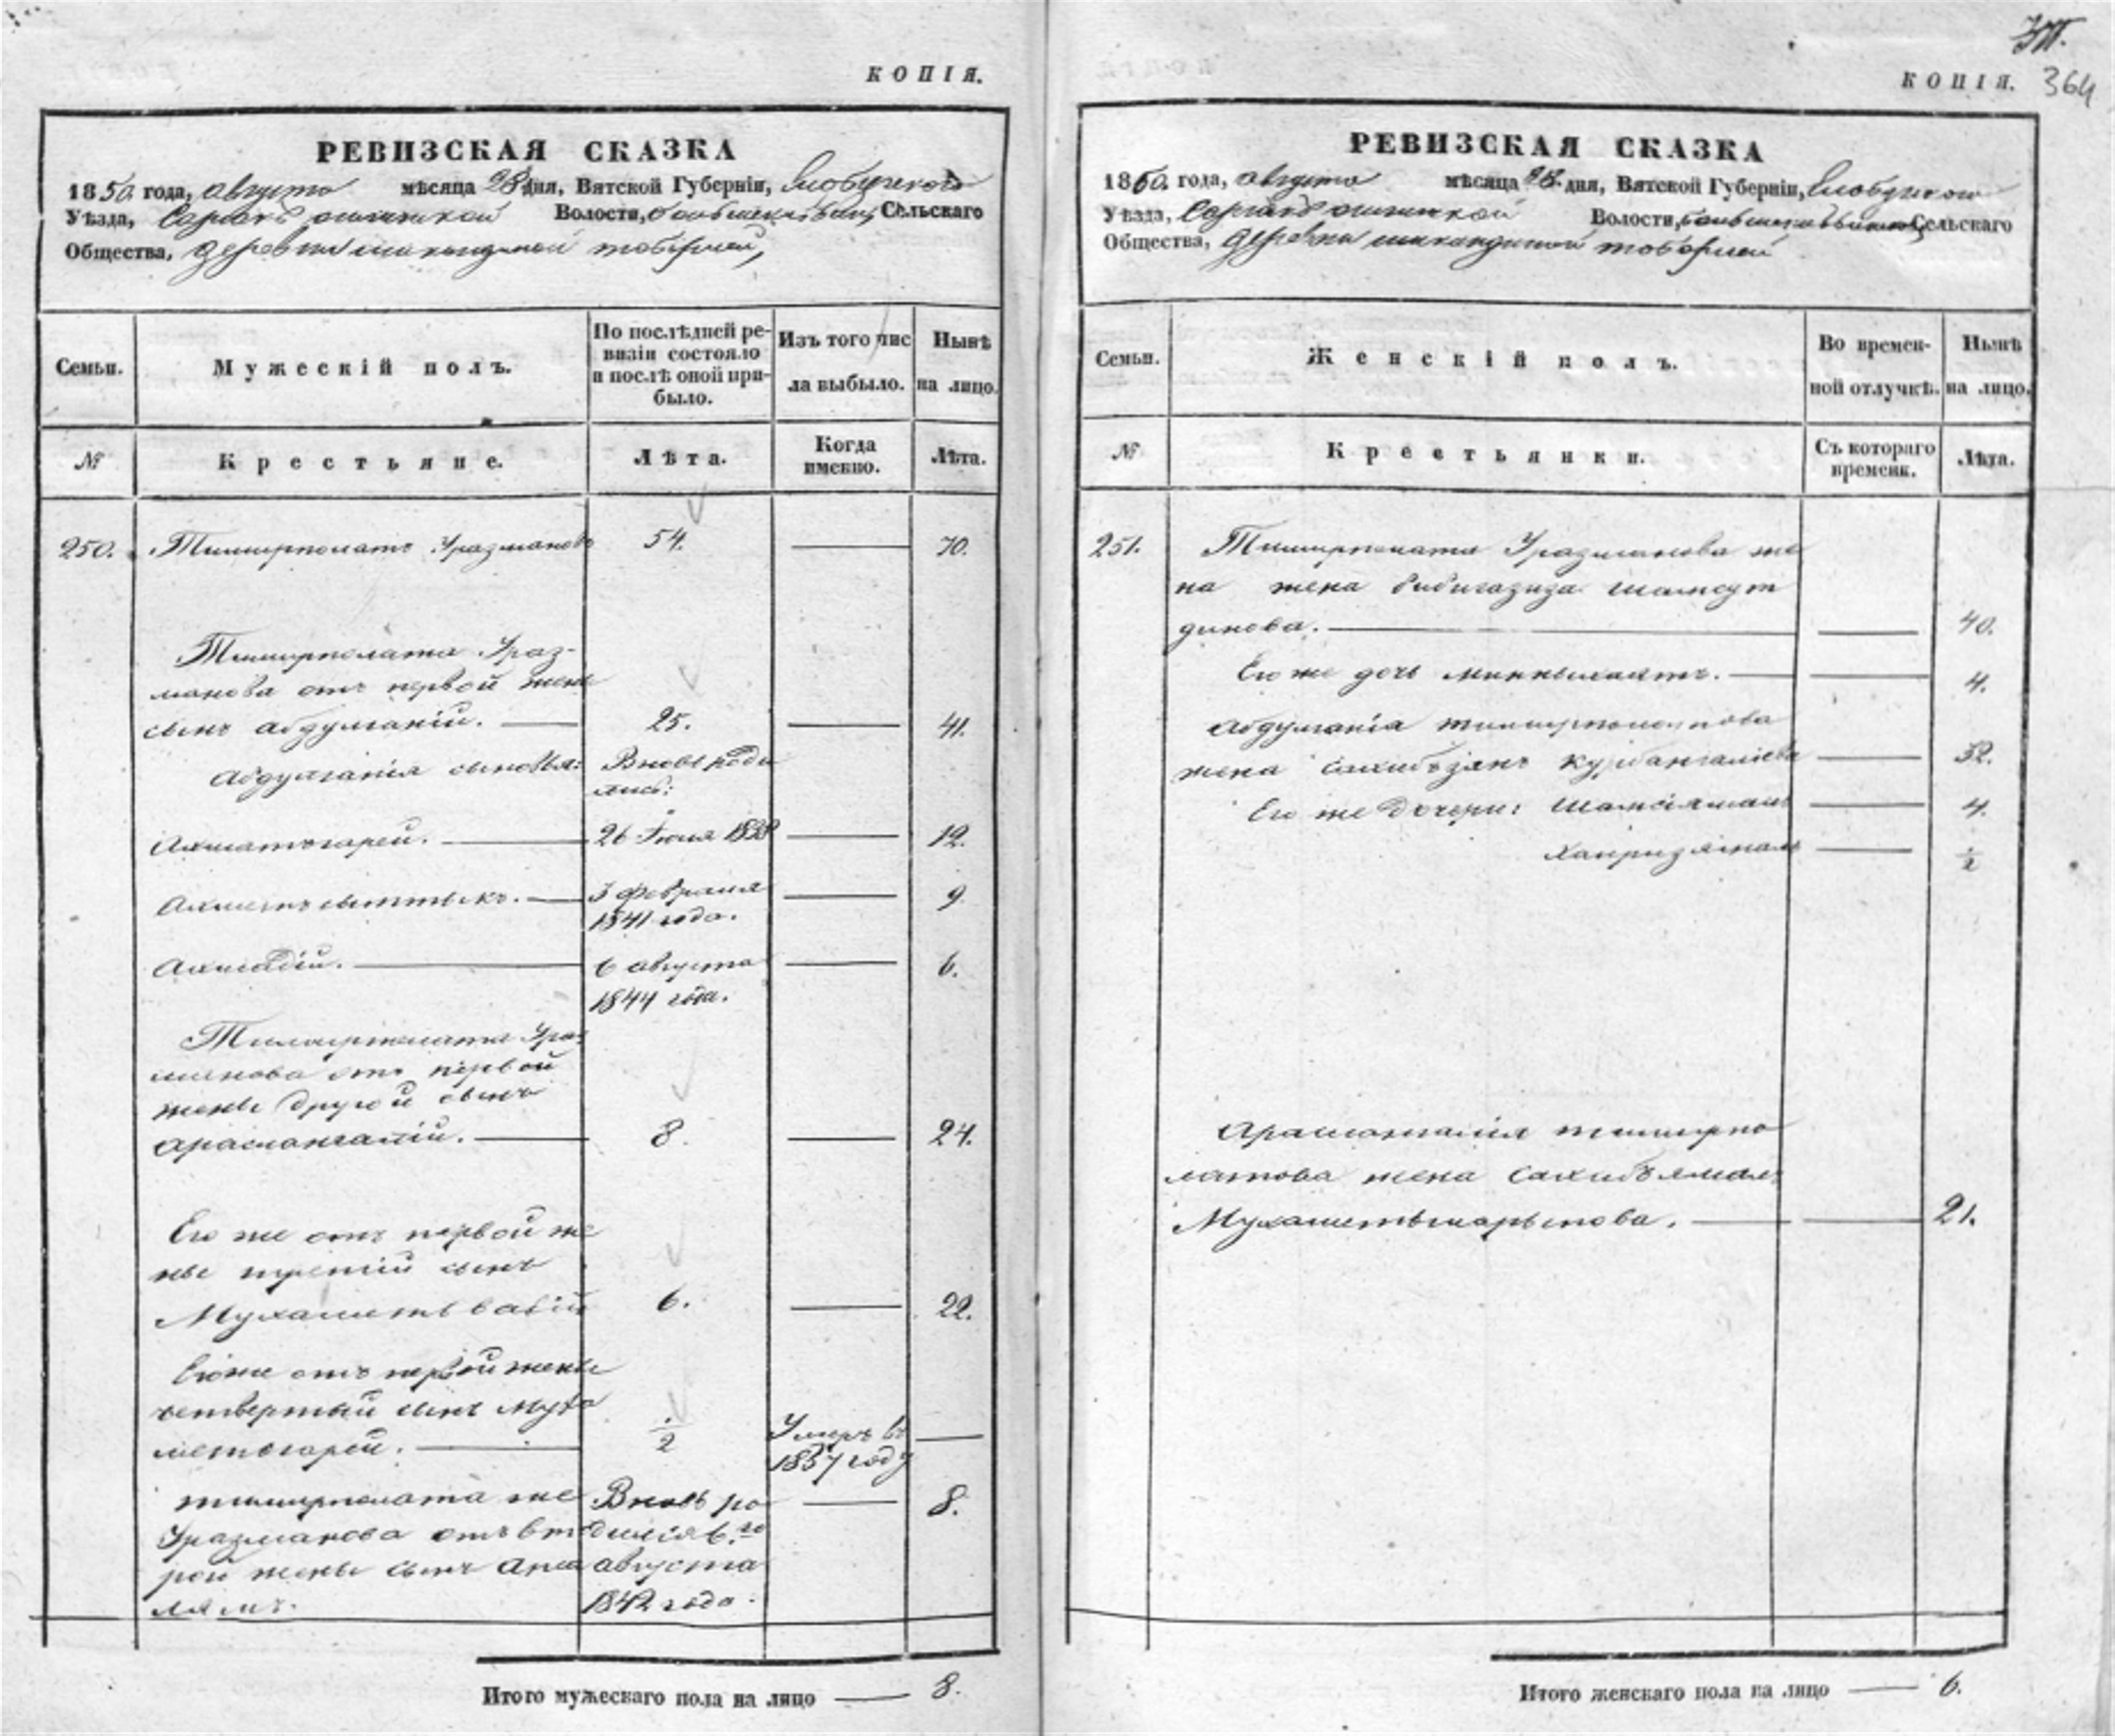 КОПІЯ.
РЕВИЗСКАЯ СКАЗКА
1850 года, августа мѣсяца 28 дня, Вятской Губерніи, Елабужского
Уѣзда, Волости, Сельскаго
Общества, деревни
Семьи. Мужескій полъ. По послѣдней ре-визіи состояло и послѣ оной при-было. Изъ того чис ла выбыло. Нынѣ на лицо.
№ Крестьяне. Лѣта. Когда именно. Лѣта.
250. Тимирполатъ Уразмановъ 54. 70.
Тимирполата Ураз-
манова отъ первой жены
сынъ абдулганій. 25. 41.
абдулганія сыновья: Вновь роди
лись:
Ахматгарей. 26 Іюня 1838 12.
Ахметъ 3 февраля 9
1841 года.
Ахмадій. 6 августа 6.
1844 года.
Тимирполата Ура
манова отъ первой
жены другой сынъ
Араслангалій. 8. 24.
Его же отъ первой же
ны третій сынъ
Мухаметь 6. 22.
Его же отъ первой жены
четвертый сынъ Муха
метгарей. 1/2 Умеръ въ
1837 году
тимирполата же Вновь ро 8.
Уразманова отъ вто дился 6.го
рой жены сынъ августа
лямъ. 1842 года.
Итого мужескаго пола на лицо 8.
364
КОПІЯ.
РЕВИЗСКАЯ СКАЗКА
1850. года, августа мѣсяца 28. дня, Вятской Губерніи, Елабужского
Уѣзда, Волости, Сельскаго
Общества, деревни
Семьи. Женскій полъ. Во времен-ной отлучкѣ. Нынѣ на лицо.
№ Крестьянки. Съ котораго времени. Лѣта.
251. Тимирполата Уразманова же
на жена бибигазиза шамсут
динова. 40.
Его же дочь 4.
Абдулганія тимирполатова
жена Курбангаліева 32.
Его же дочери: 4.
1/2
Араслангалія тимирпо
латова жена
21.
Итого женскаго пола на лицо 6.